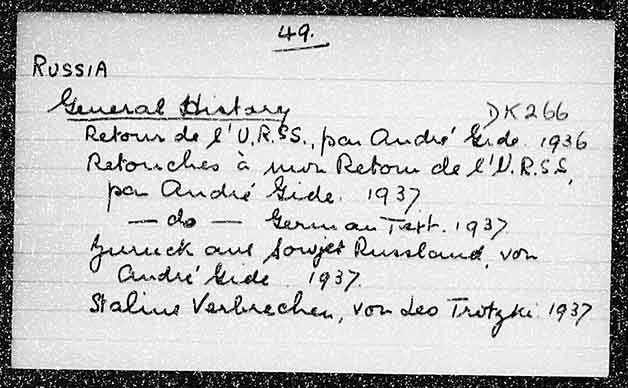 49.
RUSSIA
General History DK266
Retour de l'U.R.S.S., par André Gide. 1936
Retouches à mon Retour de l'U.R.S.S,
par André Gide. 1937
— do — German Text. 1937
Zuruck aus Sowjet Russland, von
André Gide. 1937.
Stalins Verbrechen, von Leo Trotzki 1937